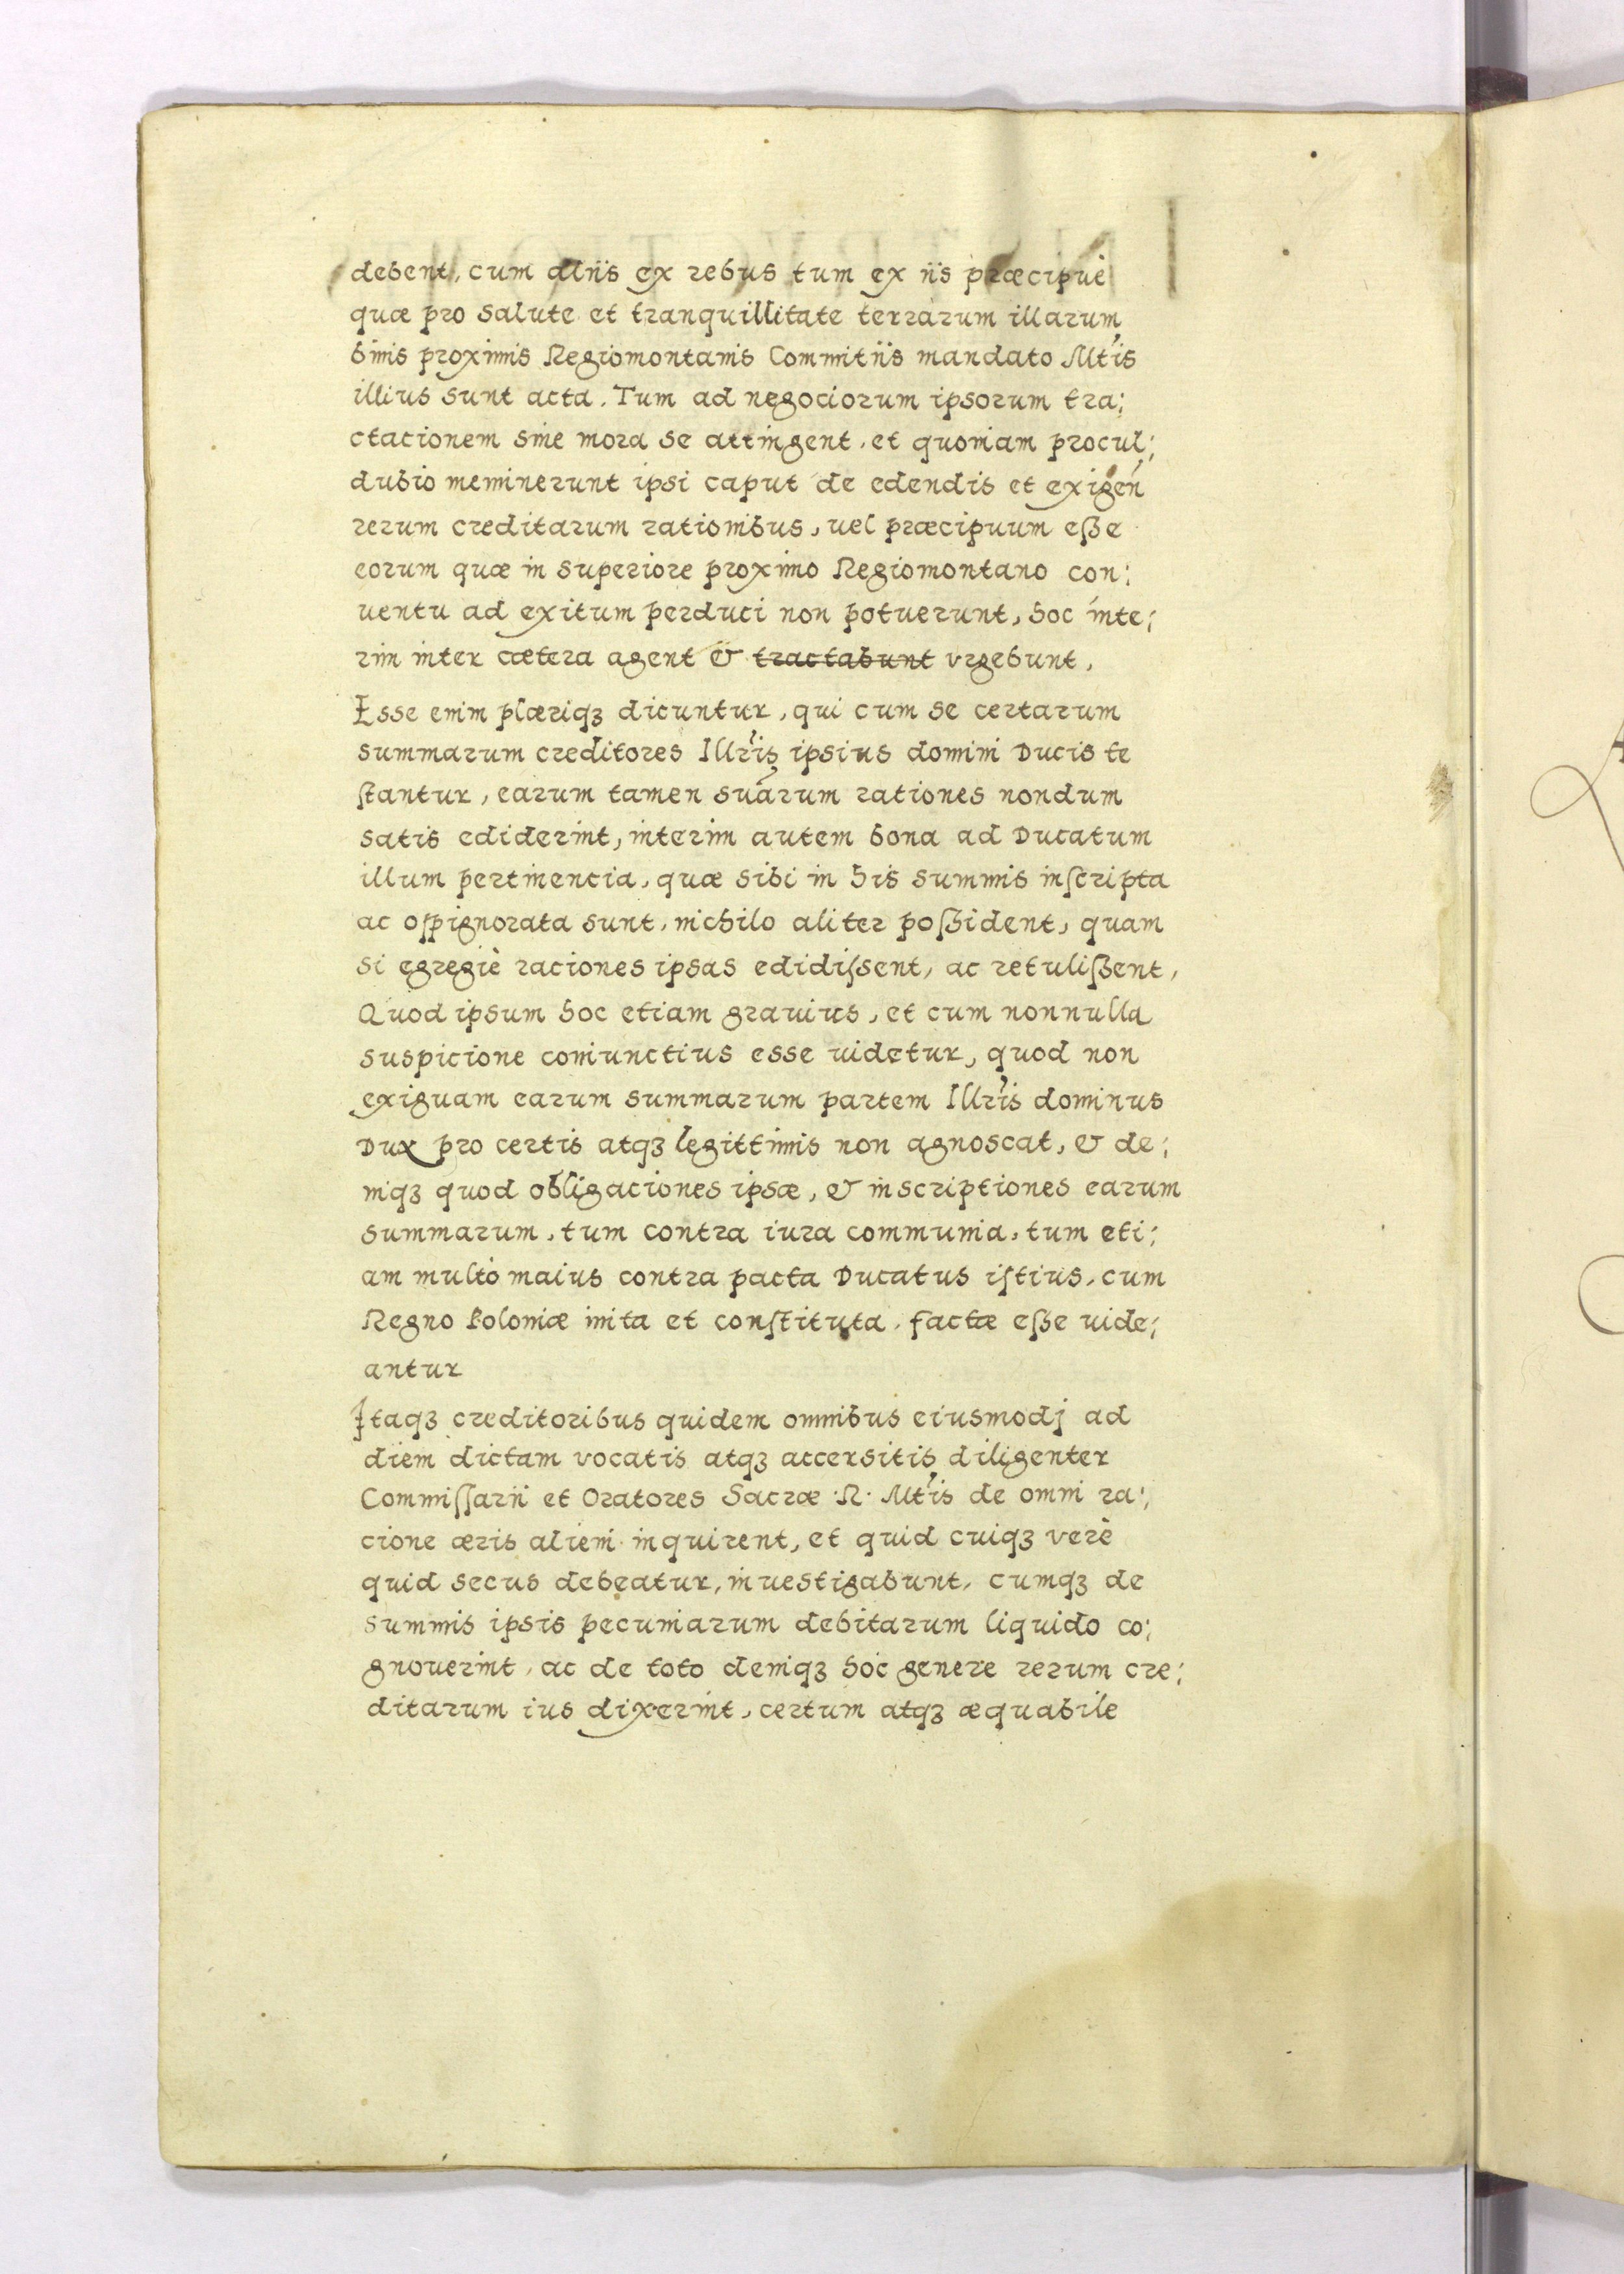 debent, cum aliis ex rebus tum ex iis præcipuè
quæ pro salute et tranquillitate terrarum illarum
binis proximis Regiomontanis Commitiis mandato Mtis
illius sunt acta. Tum ad negociorum ipsorum tra:
ctacionem sine mora se attingent, et quoniam procul:
dubio meminerunt ipsi caput de edendis et exigen
rerum creditarum rationibus, uel præcipuum eſse
eorum quæ in superiore proximo Regiomontano con:
uentu ad exitum perduci non potuerunt, hoc inte:
rim inter cætera agent & tractabunt vrgebunt,
Esse enim plæriqꝫ dicuntur, qui cum se certarum
summarum creditores Illris ipsius domini Ducis te
ſtantur, earum tamen suarum rationes nondum
satis ediderint, interim autem bona ad Ducatum
illum pertinencia, quæ sibi in his summis inſcripta
ac oppignorata sunt, nichilo aliter poſsident, quam
si egregiè raciones ipsas edidiſsent, ac retuliſsent,
Quod ipsum hoc etiam grauius, et cum nonnulla
suspicione coniunctius esse uidetur, quod non
exiguam earum summarum partem Illris dominus
Dux pro certis atqꝫ legittimis non agnoscat, & de:
niqꝫ quod obligaciones ipsæ, & inscriptiones earum
summarum, tum contra iura communia, tum eti:
am multò maius contra pacta Ducatus iſtius, cum
Regno Poloniæ inita et conſtituta, factæ eſse uide:
antur
Itaqꝫ creditoribus quidem omnibus eiusmodj ad
diem dictam vocatis atqꝫ accersitis diligenter
Commiſſarii et Oratores Sacræ R. Mtis de omni ra:
cione æris alieni inquirent, et quid cuiqꝫ verè
quid secus debeatur, inuestigabunt, cumqꝫ de
summis ipsis pecuniarum debitarum liquido co:
gnouerint, ac de toto deniqꝫ hoc genere rerum cre:
ditarum ius dixerint, certum atqꝫ æquabile